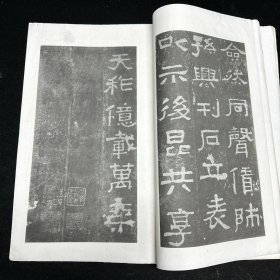 僉然同聲賃師
孫興刊石立表
以示後昆共享
天祚億載萬年